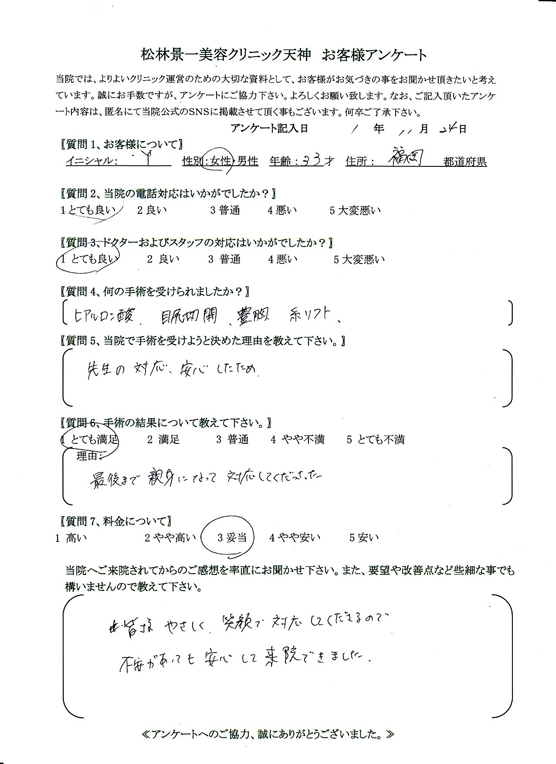 松林景一美容クリニック天神　お客様アンケート
当院では、よりよいクリニック運営のための大切な資料として、お客様がお気づきの事をお聞かせ頂きたいと考え
ています。誠にお手数ですが、アンケートにご協力下さい。よろしくお願い致します。なお、ご記入頂いたアンケ
ート内容は、匿名にて当院公式のSNSに掲載させて頂く事もございます。何卒ご了承下さい。
アンケート記入日　1年 11月 24日
〖質問1、お客様について〗
イニシャル： Y　性別：女性・男性　年齢：33才　住所： 福岡　都道府県
〖質問2、当院の電話対応はいかがでしたか？〗
1とても良い　2良い　3普通　4悪い　5大変悪い
〖質問3、ドクターおよびスタッフの対応はいかがでしたか？〗
1とても良い　2 良い　3 普通　4悪い　5大変悪い
〖質問4、何の手術を受けられましたか？〗
ヒアルロン酸、目尻切開、豊胸　糸リフト、
〖質問5、当院で手術を受けようと決めた理由を教えて下さい。〗
先生の対応、安心したため
〖質問6、手術の結果について教えて下さい。〗
1 とても満足　2 満足　3 普通　4 やや不満　5 とても不満
理由：
最後まで親身になって対応してくださった
〖質問7、料金について〗
1 高い　2やや高い　3妥当　4やや安い　5安い
当院へご来院されてからのご感想を率直にお聞かせ下さい。また、要望や改善点など些細な事でも
構いませんので教えて下さい。
皆様 やさしく、笑顔で対応してくださるので
不安があっても安心して来院できました。
≪アンケートへのご協力、誠にありがとうございました。≫